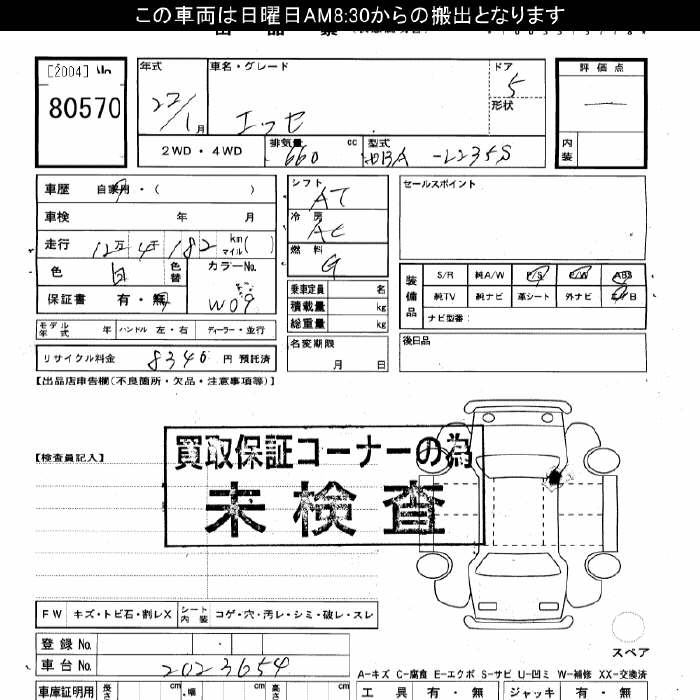 この車両は日曜日AM8:30からの搬出となります
[2004]
80570
年式
22/1月
車名・グレード
エッセ
ドア
5
形状
評価点
内装
2WD・4WD
排気量 660 cc
型式 -L235S
車歴 自家用・( )
車検 年 月
走行 12万4千182 km マイル( )
色 白 色替 カラーNo. W09
保証書 有・無
シフト AT
冷房 AC
燃料 G
乗車定員 名
積載量 kg
総重量 kg
セールスポイント
装備品
S/R 純A/W P/S P/W ABS
純TV 純ナビ 革シート 外ナビ エアB
ナビ型番:
モデル年式 年 ハンドル 左・右 ディーラー・並行
名変期限 月 日
後日品
リサイクル料金 8340 円 預託済
【出品店申告欄(不良箇所・欠品・注意事項等)】
【検査員記入】
買取保証コーナーの為
未検査
FW キズ・トビ石・割レX シート内装 コゲ・穴・汚レ・シミ・破レ・スレ
スペア
登録No.
車台No. 2023654
A-キズ C-腐食 E-エクボ S-サビ U-凹ミ W-補修 XX-交換済
車庫証明用 長さ cm 幅 cm 高さ cm
工具 有・無 ジャッキ 有・無